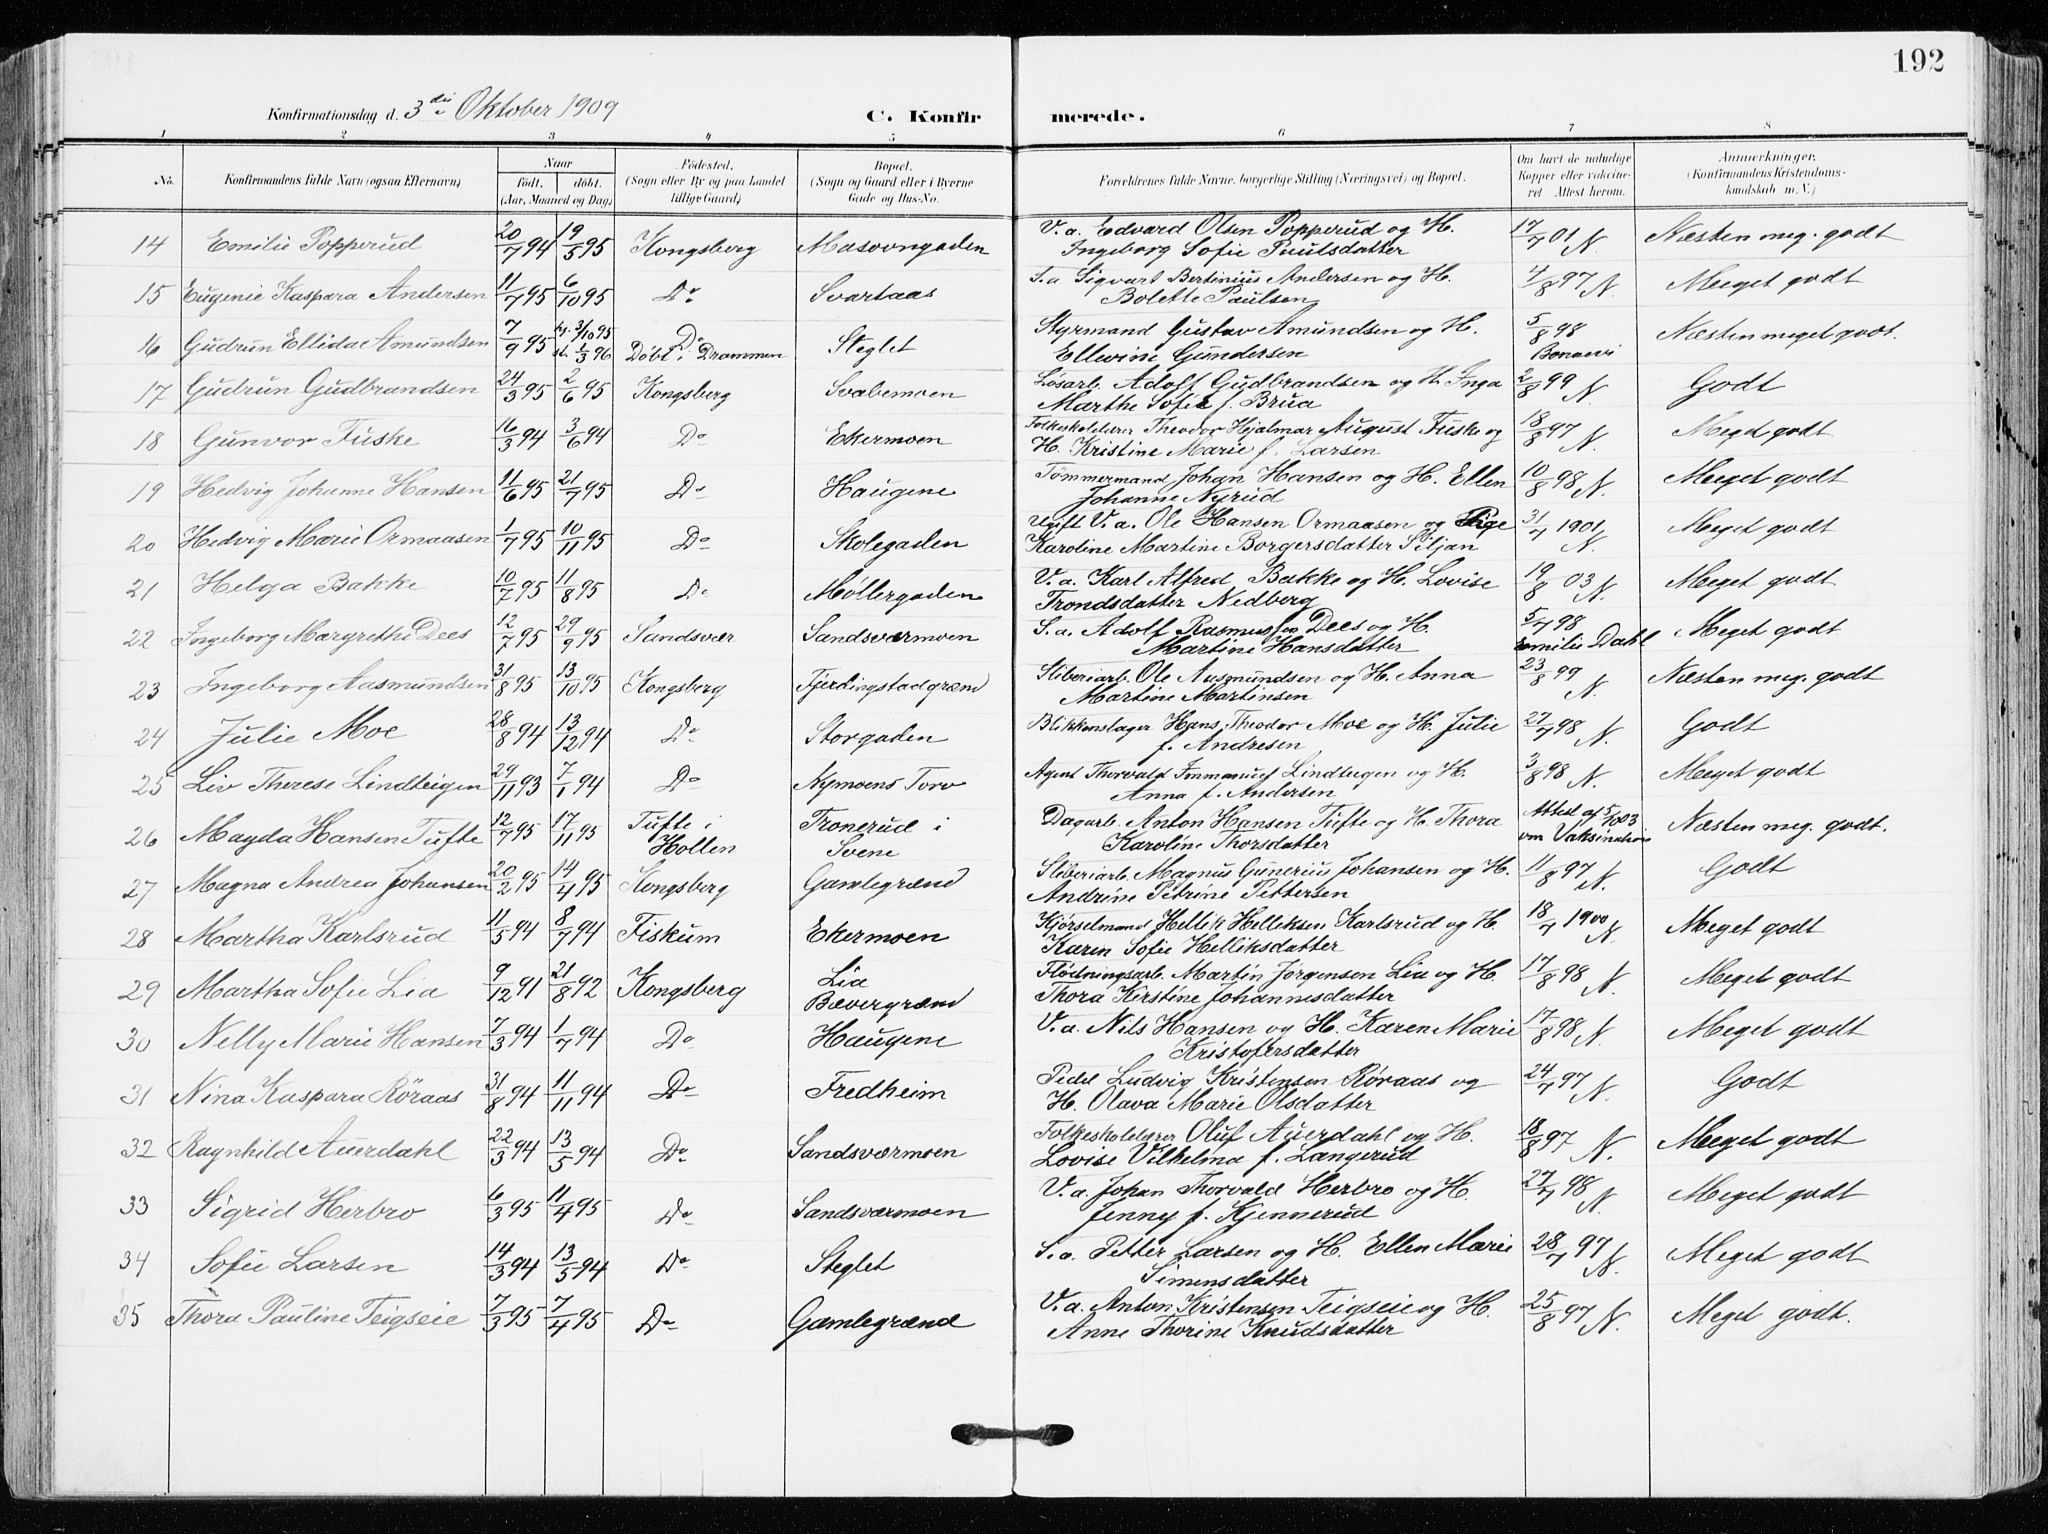 192
Konfirmationsdag d. 3die Oktober 1909
C. Konfirmerede.
1 2 3 4 5 6 7 8
No. | Konfirmandens fulde Navn (ogsaa Efternavn) | Naar født. døbt. (Aar, Maaned og Dag) | Fødested. (Sogn eller By og paa Landet tillige Gaard) | Bopæl. (Sogn og Gaard eller i Byerne Gade og Hus-No. | Forældrenes fulde Navne, borgerlige Stilling (Næringsvei) og Bopæl. | Om havt de naturlige Kopper eller vaccineret Attest herom. | Anmærkninger. (Konfirmandens Kristendomskundskab m. V.)
14 Emilie Popperud 20/7 94 19/5 95 Kongsberg Masovngaden V. a. Edvard Olsen Popperud og H. 17/7 01 N. Næsten meg. godt
Ingeborg Sofie Poulsdatter
15 Eugenie Kaspara Andersen 11/7 95 6/10 95 Do Svartaas S. a Sigvart Bertinius Andersen og H. 4/8 97 N. Meget godt
Bolette Paulsen
16 Gudrun Ellida Amundsen 7/9 95 hj. 3/10 95 Do Steglet Styrmand Gustav Amundsen og H. 5/8 98 Næsten meget godt.
st. 1/3 96 Døbt i Drammen Ellevine Gundersen Bonnevi
17 Gudrun Gudbrandsen 24/3 95 2/6 95 Kongsberg Svabemoen Løsarb. Adolf Gudbrandsen og H. Inga 2/8 99 N. Godt
Marthe Sofie f. Brua
18 Gunvor Fuske 16/3 94 3/6 94 Do Ekermoen Folkeskolelærer Theodor Hjalmar August Fuske og 18/8 97 N. Meget godt
H. Kristine Marie f. Larsen
19 Hedvig Johanne Hansen 11/6 95 21/7 95 Do Haugene Tømmermand Johan Hansen og H. Ellen 10/8 98 N. Meget godt
Johanne Nyrud
20 Hedvig Marie Ormaasen 1/7 95 10/11 95 Do Skolegaden Ugift V. a. Ole Hansen Ormaasen og Pige 31/7 1901 N. Meget godt
Karoline Martine Borgersdatter Siljan
21 Helga Bakke 10/7 95 11/8 95 Do Møllergaden V. a. Karl Alfred Bakke og H. Lovise 19/8 03 N. Meget godt
Trondsdatter Nedberg
22 Ingeborg Margrethe Dees 12/7 95 29/9 95 Sandsvær Sandsværmoen S. a. Adolf Rasmussen Dees og H. 5/7 98 Meget godt
Martine Hansdatter Emilie Dahl
23 Ingeborg Aasmundsen 31/8 95 13/10 95 Kongsberg Fjerdingstadgrænd Sliberiarb. Ole Aasmundsen og H. Anna 23/8 99 N. Næsten meg. godt
Martine Martinsen
24 Julie Moe 28/8 94 13/12 94 Do Storgaden Blikkenslager Hans Theodor Moe og H. Julie 27/7 98 N. Godt
f. Andresen
25 Liv Therese Lindteigen 29/11 93 7/1 94 Do Nymoens Torv Agent Thorvald Immanuel Lindteigen og H. 3/8 98 N. Meget godt
Anna f. Andersen
26 Magda Hansen Tufte 12/7 95 17/11 95 Tufte i Tronerud i Dagarb. Anton Hansen Tufte og H. Thora Attest af 5/10 03 Næsten meg. godt.
Hollen Svene Karoline Thorsdatter om Vaksination
27 Magna Andrea Johansen 20/2 95 14/4 95 Kongsberg Gamlegrænd Sliberiarb. Magnus Gunerius Johansen og H. 11/8 97 N. Godt
Andrine Petrine Pettersen
28 Martha Karlsrud 11/5 94 8/7 94 Fiskum Ekermoen Kjørselmand Hellik Helliksen Karlsrud og H. 18/7 1900 N. Meget godt
Karen Sofie Helliksdatter
29 Martha Sofie Lia 9/12 91 21/8 92 Kongsberg Lia Flødningsarb. Martin Jørgensen Lia og H. 17/8 98 N. Meget godt
Bævergrænd Thora Kirstine Johannesdatter
30 Nelly Marie Hansen 7/3 94 1/7 94 Do Haugene V. a. Nils Hansen og H. Karen Marie 17/8 98 N. Meget godt
Kristofersdatter
31 Nina Kaspara Røraas 31/8 94 11/11 94 Do Fredheim Pedel Ludvig Kristensen Røraas og 24/7 97 N. Godt
H. Olava Marie Olsdatter
32 Ragnhild Auerdahl 22/3 94 13/5 94 Do Sandsværmoen Folkeskolelærer Oluf Auerdahl og H. 18/8 97 N. Meget godt
Lovise Vilhelma f. Langerud
33 Sigrid Herbro 6/3 95 11/4 95 Do Sandsværmoen V. a. Johan Thorvald Herbro og H. 27/7 98 N. Meget godt
Jenny f. Kjennerud
34 Sofie Larsen 14/3 94 13/5 94 Do Steglet S. a. Petter Larsen og H. Ellen Marie 28/7 97 N. Meget godt
Simensdatter
35 Thora Pauline Teigseie 7/3 95 7/4 95 Do Gamlegrænd V. a. Anton Kristensen Teigseie og H. 25/8 97 N. Meget godt.
Anne Thorine Knudsdatter